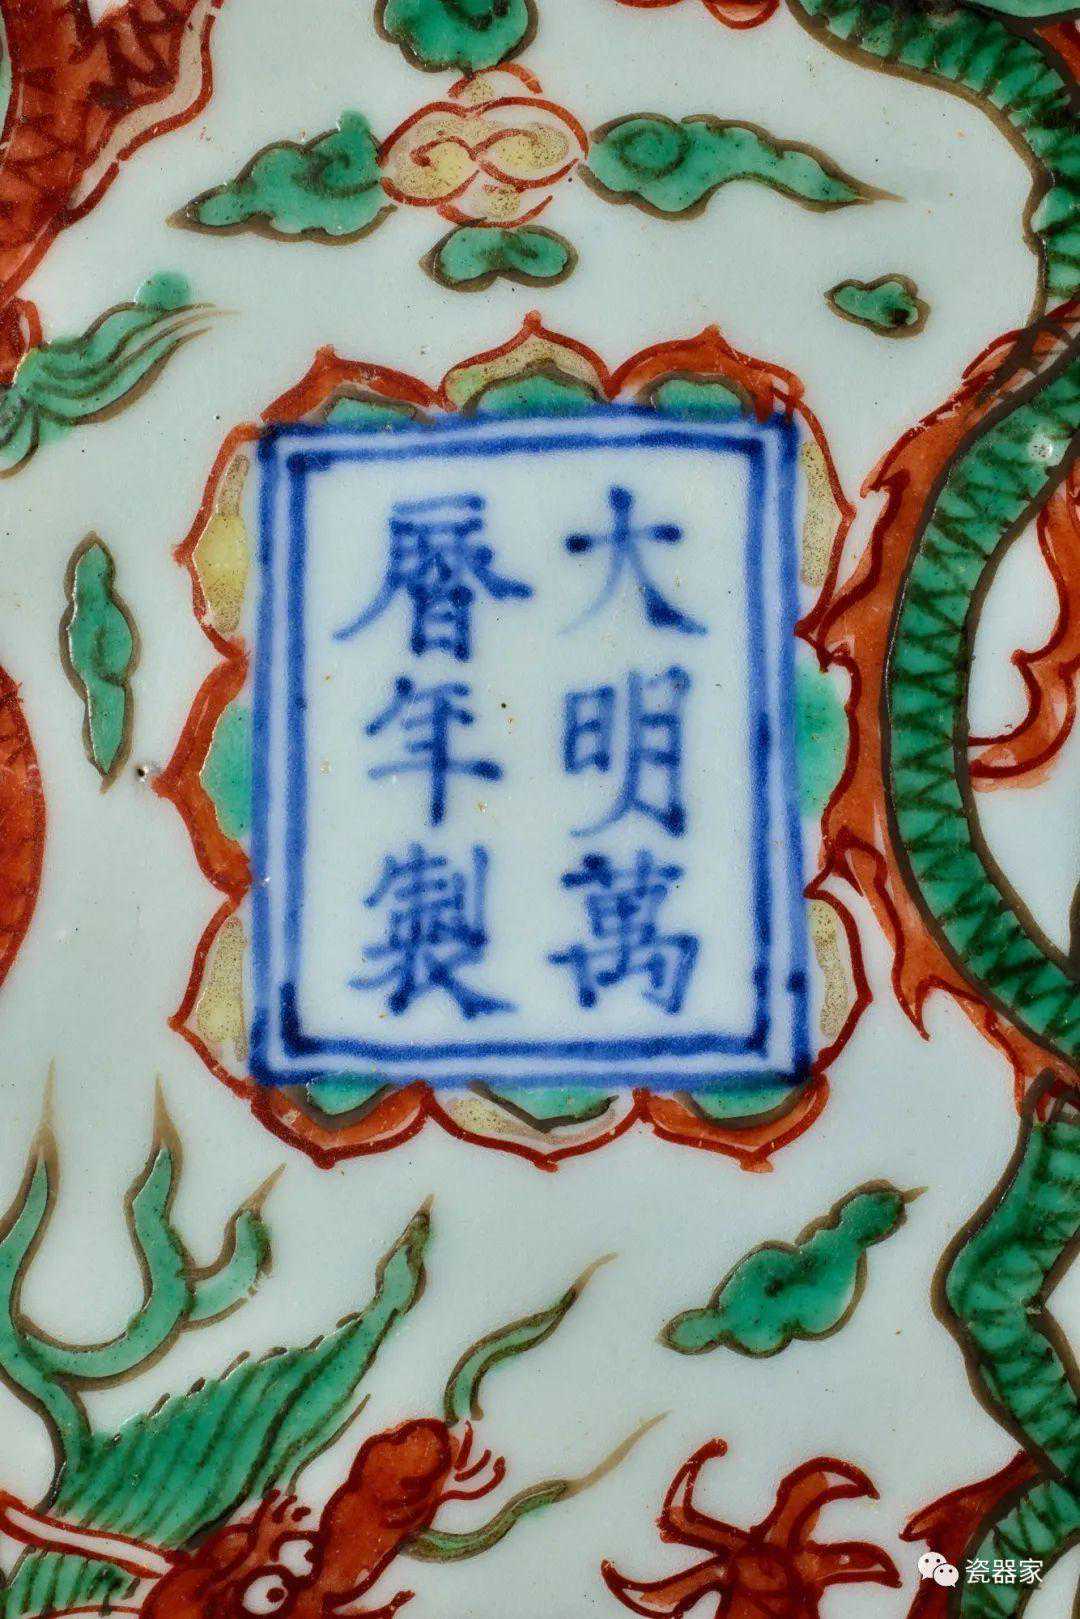 大明萬
曆年製
瓷器家